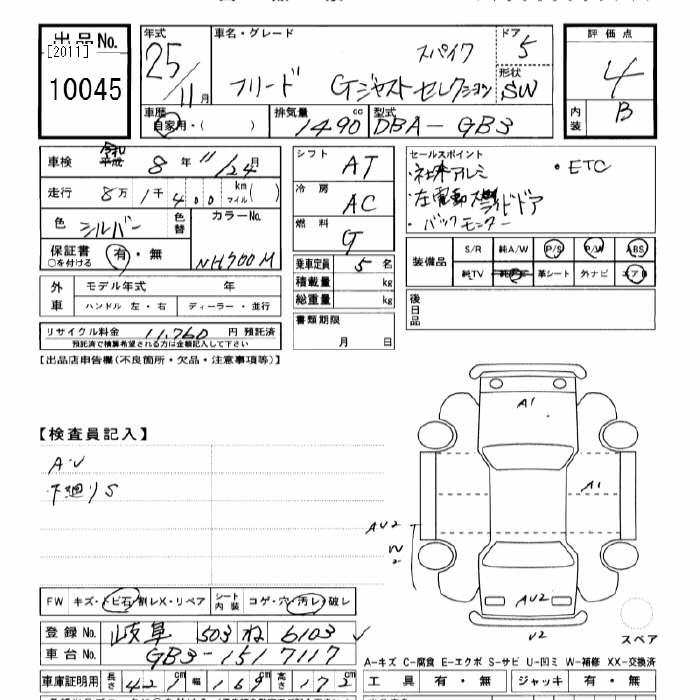 出品No.
[2011]
10045
年式
25/11月
車名・グレード
スパイク
フリード Gジャストセレクション
ドア
5
形状
SW
評価点
4
内装
B
車歴
自家用・( )
排気量
1490 cc
型式
DBA-GB3
車検 令和 平成 8年11/24月
走行 8万1千400 km マイル( )
色 シルバー
色替
カラーNo.
NH700M
保証書 有・無
○を付ける
外車
モデル年式 年
ハンドル 左・右
ディーラー・並行
リサイクル料金 11,760 円 預託済
預託済で積算希望される方は金額記入して下さい
シフト AT
冷房 AC
燃料 G
乗車定員 5 名
積載量 kg
総重量 kg
書類期限
月 日
セールスポイント
・社外アルミ
・ETC
・左電動スライドドア
・バックモニター
装備品
S/R 純A/W P/S P/W ABS
純TV 革シート 外ナビ エアB
後日品
【出品店申告欄(不良箇所・欠品・注意事項等)】
【検査員記入】
A・U
下廻りS
A1
A1
AU2
W2
AU2
U2
FW キズ・トビ石・割レX・リペア
シート内装 コゲ・穴・汚レ・破レ
登録No. 岐阜 503 ね 6103
車台No. GB3-1517117
車庫証明用 長さ 421cm 幅 169cm 高さ 172cm
スペア
A-キズ C-腐食 E-エクボ S-サビ U-凹ミ W-補修 XX-交換済
工具 有・無 ジャッキ 有・無